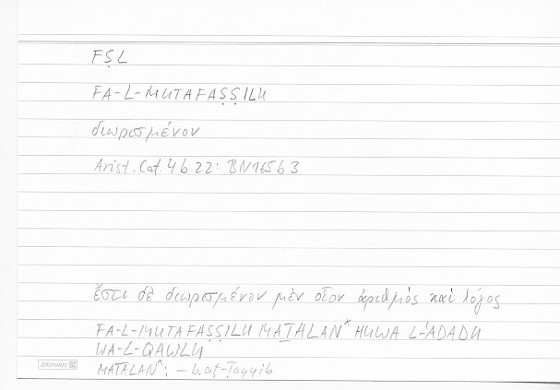 FṢL
FA-L-MUTAFAṢṢILU
διωρισμένον
Arist. Cat. 4 b 22: BN 165 b 3
ἔστι δὲ διωρισμένον μὲν οἷον ἀριθμὸς καὶ λόγος
FA-L-MUTAFAṢṢILU MAṮALAN* HUWA L-ʿADADU
WA-L-QAWLU
MAṮALAN^: – b. aṭ-Ṭayyib